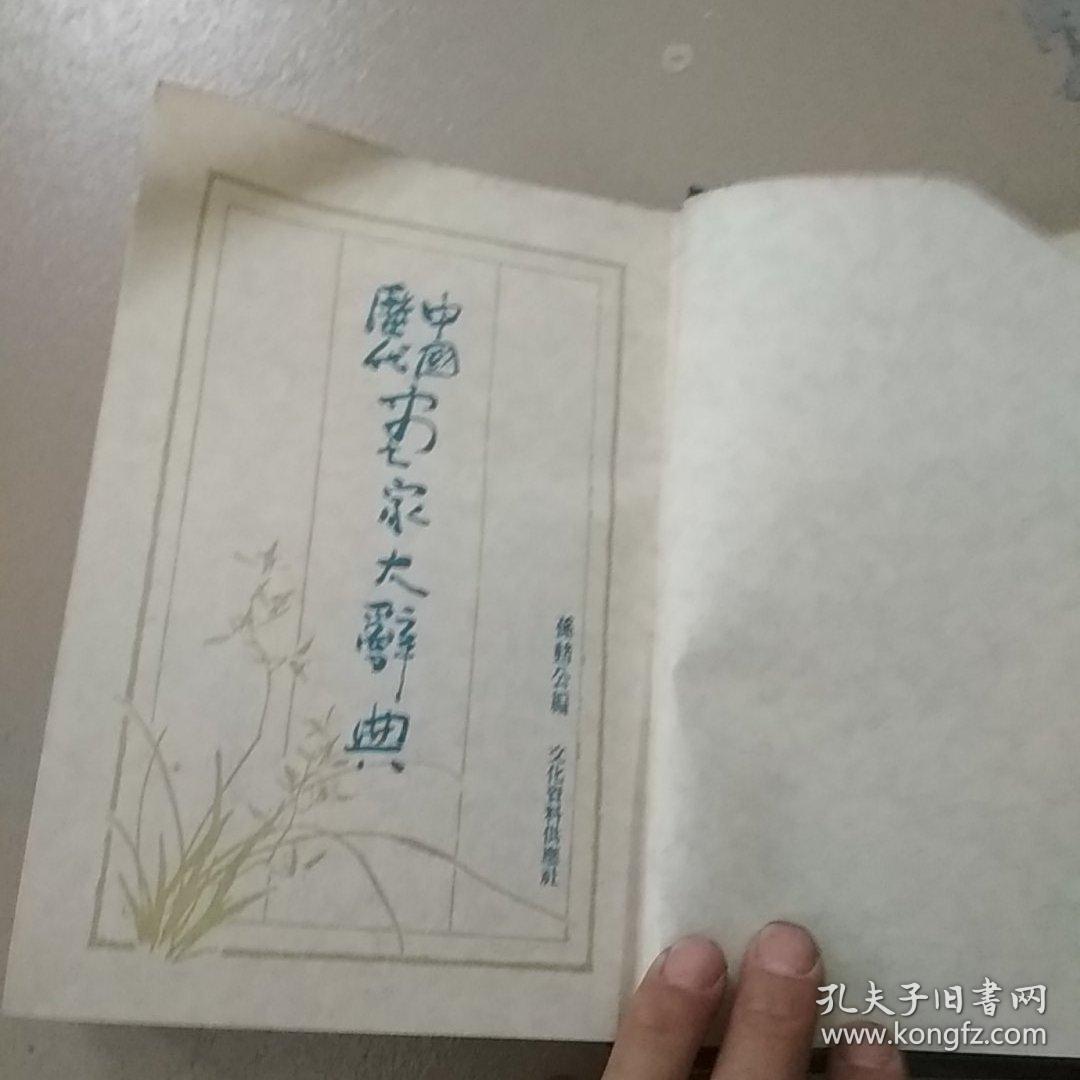 中國
歷代
家大辭典
孫 公編 文化資料供應社
孔夫子旧書网
www.kongfz.com